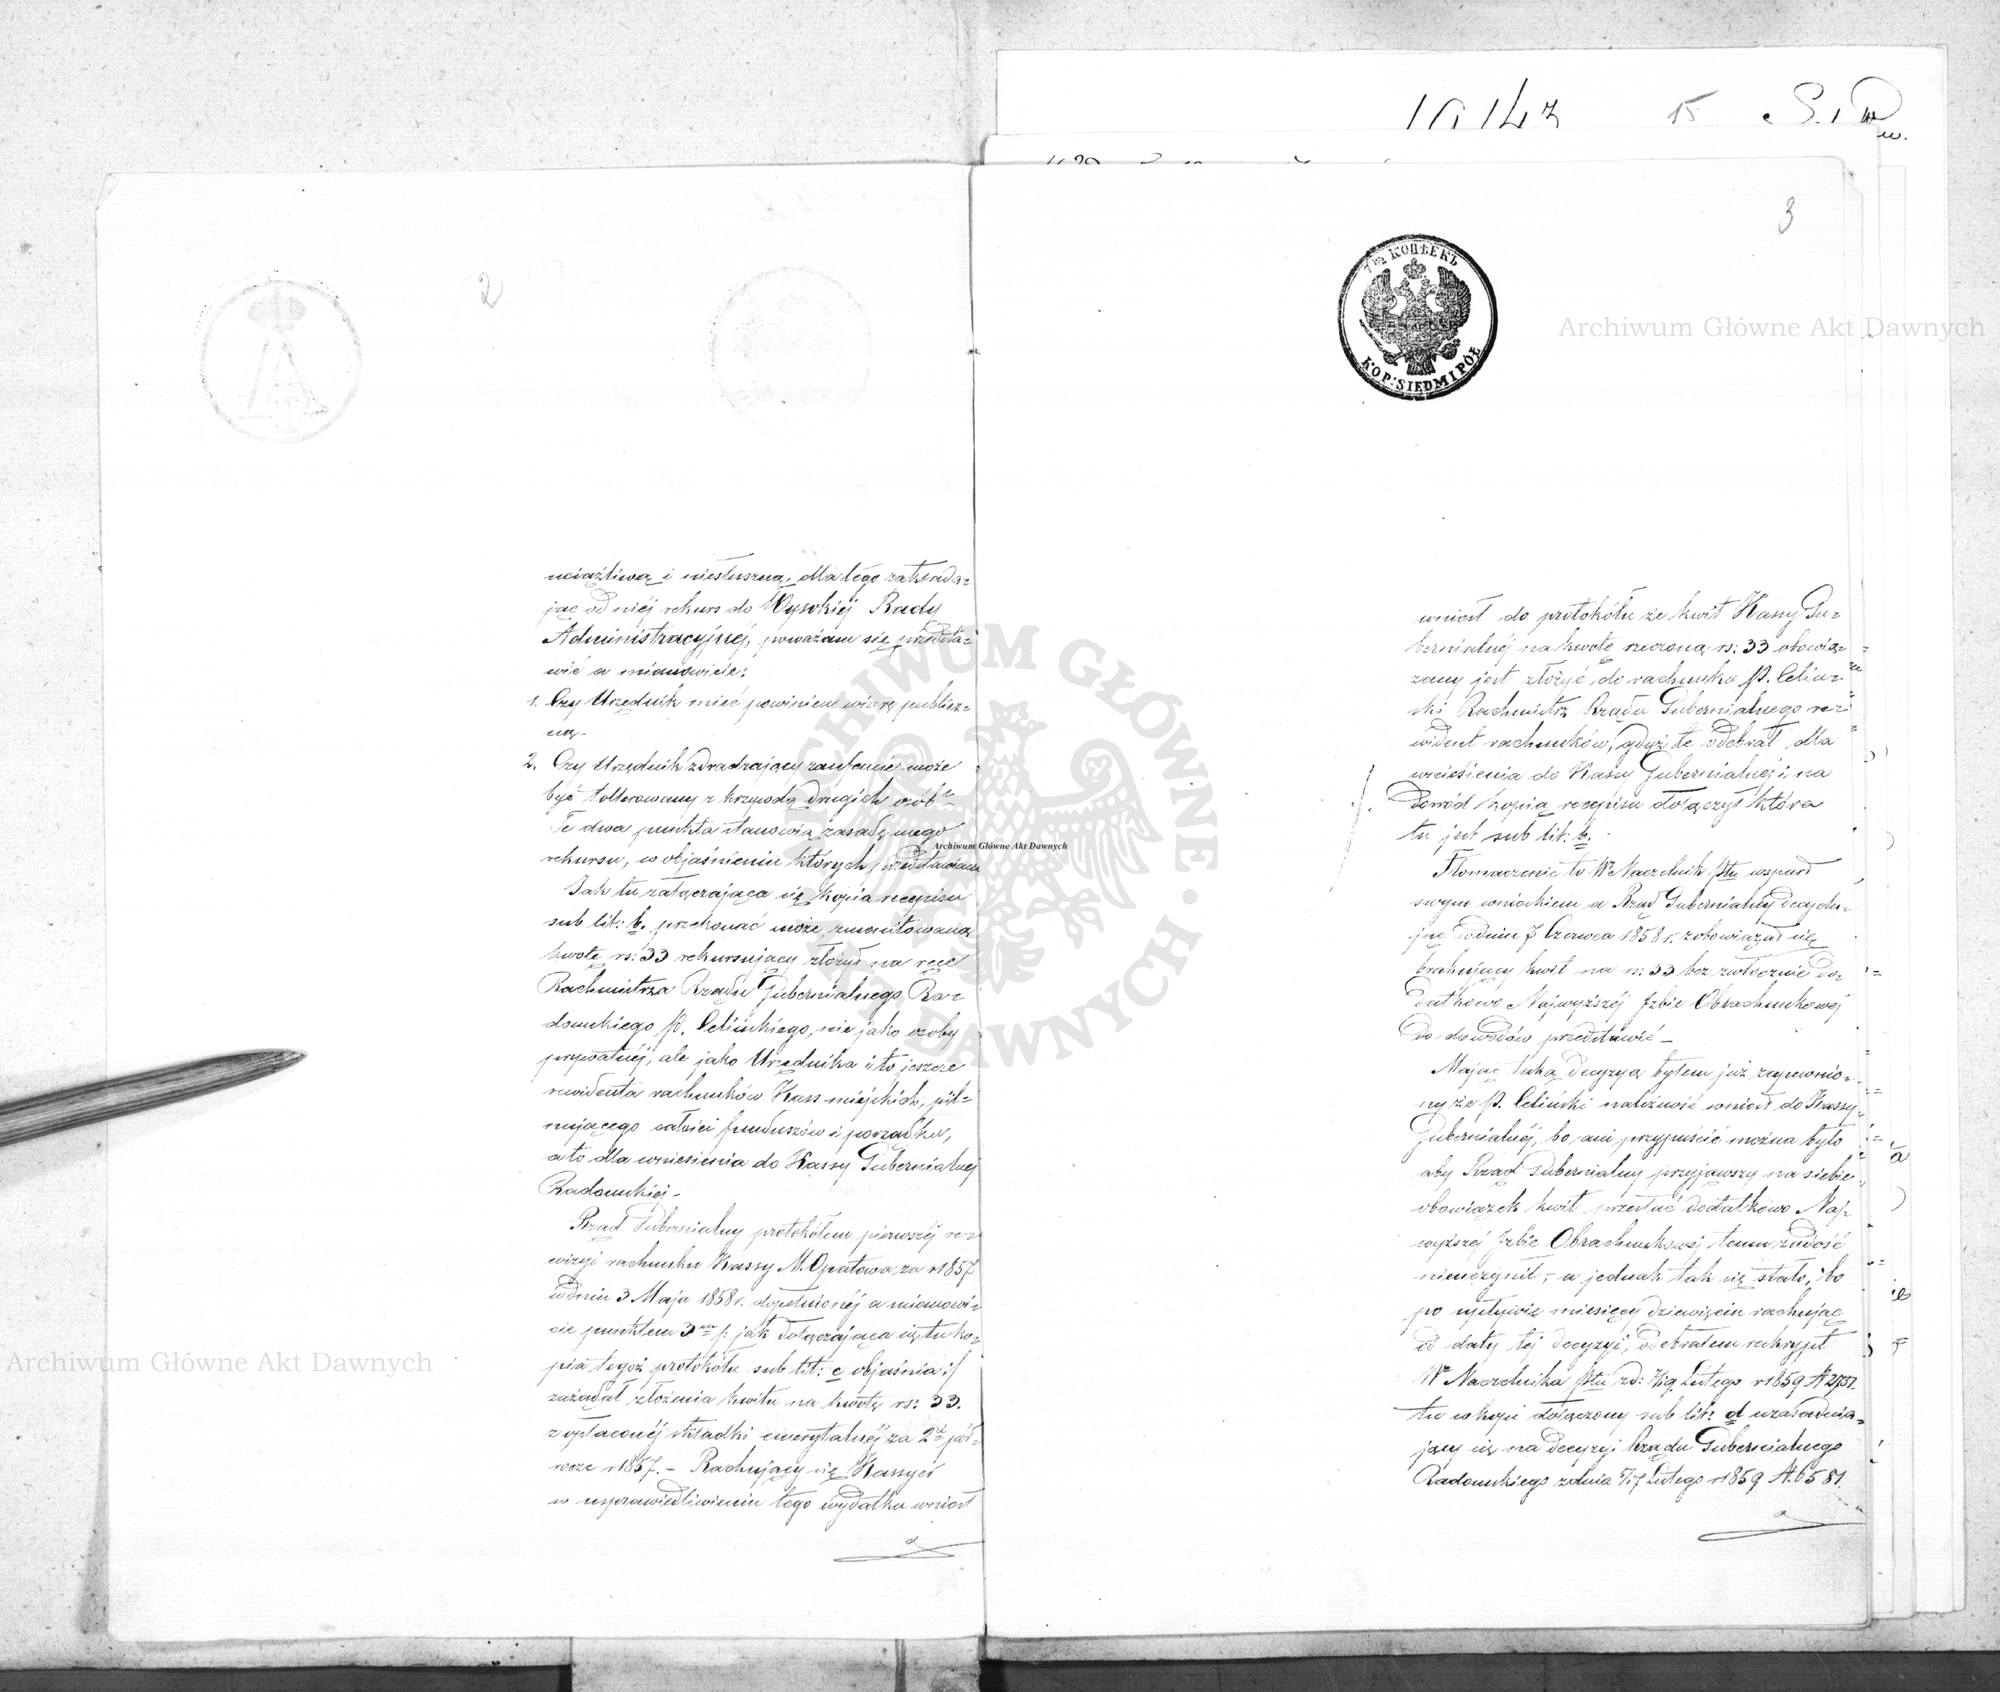 2
uciążliwą i niesłuszną, dla tego zakłada=
jąc od niéj rekurs do Wysokiéj Rady
Administracyjnéj, poważam się przedsta=
wić a mianowicie:
1. Czy Urzędnik mieć powinien wiarę publicz=
ną –
2. Czy Urzędnik zdradzający zaufanie może
być tollerowany z krzywdą drugich osób –
Te dwa punkta stanowią zasadę mego
rekursu, w objaśnieniu których przedstawiam
Jak tu załączająca się kopia recepisu
sub lit: b. przekonać może, zmonitowaną
kwotę rs: 33 rekursujący złożył na ręce
Rachmistrza Rządu Gubernialnego Ra=
domskiego P. Celińskiego, nie jako osoby
prywatnéj, ale jako Urzędnika i to jeszcze
rewidenta rachunków Kass miejskich, pil=
nującego całości funduszów i porządku,
a to dla wniesienia do Kassy Gubernialnéj
Radomskiéj –
Rząd Gubernialny protokółem pierwszéj re=
wizyi rachunku Kassy M. Opatowa, za r 1857
w dniu 3 Maja 1858 r. dopełnionéj a mianowi=
cie punktem 3m /: jak dołączająca się tu ko=
pia tegoż protokółu sub lit: c objaśnia :/
zażądał złożenia kwitu na kwotę rs: 33.
z opłaconéj składki emerytalnéj za 2gie pół=
rocze r 1857. – Rachujący się Kassyer
w usprawiedliwieniu tego wydatku wniosł
3
7 1/2 КОПѢЕКЪ
KOP: SIEDM I PÓŁ
wniosł do protokółu że kwit Kassy Gu=
bernialnéj na kwotę rzeczoną rs: 33 obowią=
zany jest złożyć do rachunku P. Celiń=
ski Rachmistrz Rządu Gubernialnego re=
wident rachunków, gdyż te odebrał dla
wniesienia do Kassy Gubernialnéj i na
dowód kopią recepisu dołączył która
tu jest sub lit: b. –
Tłomaczenie to Wny Naczelnik Ptu wsparł
swym wnioskiem a Rząd Gubernialny decydu=
jąc w dniu 7 Czerwca 1858 r. zobowiązał się
brakujący kwit na rs: 33 bez zwłocznie do=
datkowo Najwyższéj Izbie Obrachunkowéj
do dowodów przedstawić –
Mając taką decyzyą byłem już zapewnio=
ny że P. Celiński należność wniosł do Kassy
Gubernialnéj, bo ani przypuścić można było
aby Rząd Gubernialny przyjąwszy na siebie
obowiązek kwit przesłać dodatkowo Naj=
wyższéj Izbie Obrachunkowéj temu zadość
nieuczynił, – a jednak tak się stało, bo
po upływie miesięcy dziewięciu rachując
od daty téj decyzyi, odebrałem reskrypt
Wo Naczelnika Ptu zd: 7/19 Lutego r 1859
tu w kopii dołączony sub lit: d uzasadnia=
jący się na decyzyi Rządu Gubernialnego
Radomskiego z dnia 5/17 Lutego r 1859 N. 6581.
Archiwum Główne Akt Dawnych
Archiwum Główne Akt Dawnych
Archiwum Główne Akt Dawnych
ARCHIWUM GŁÓWNE AKT DAWNYCH
15